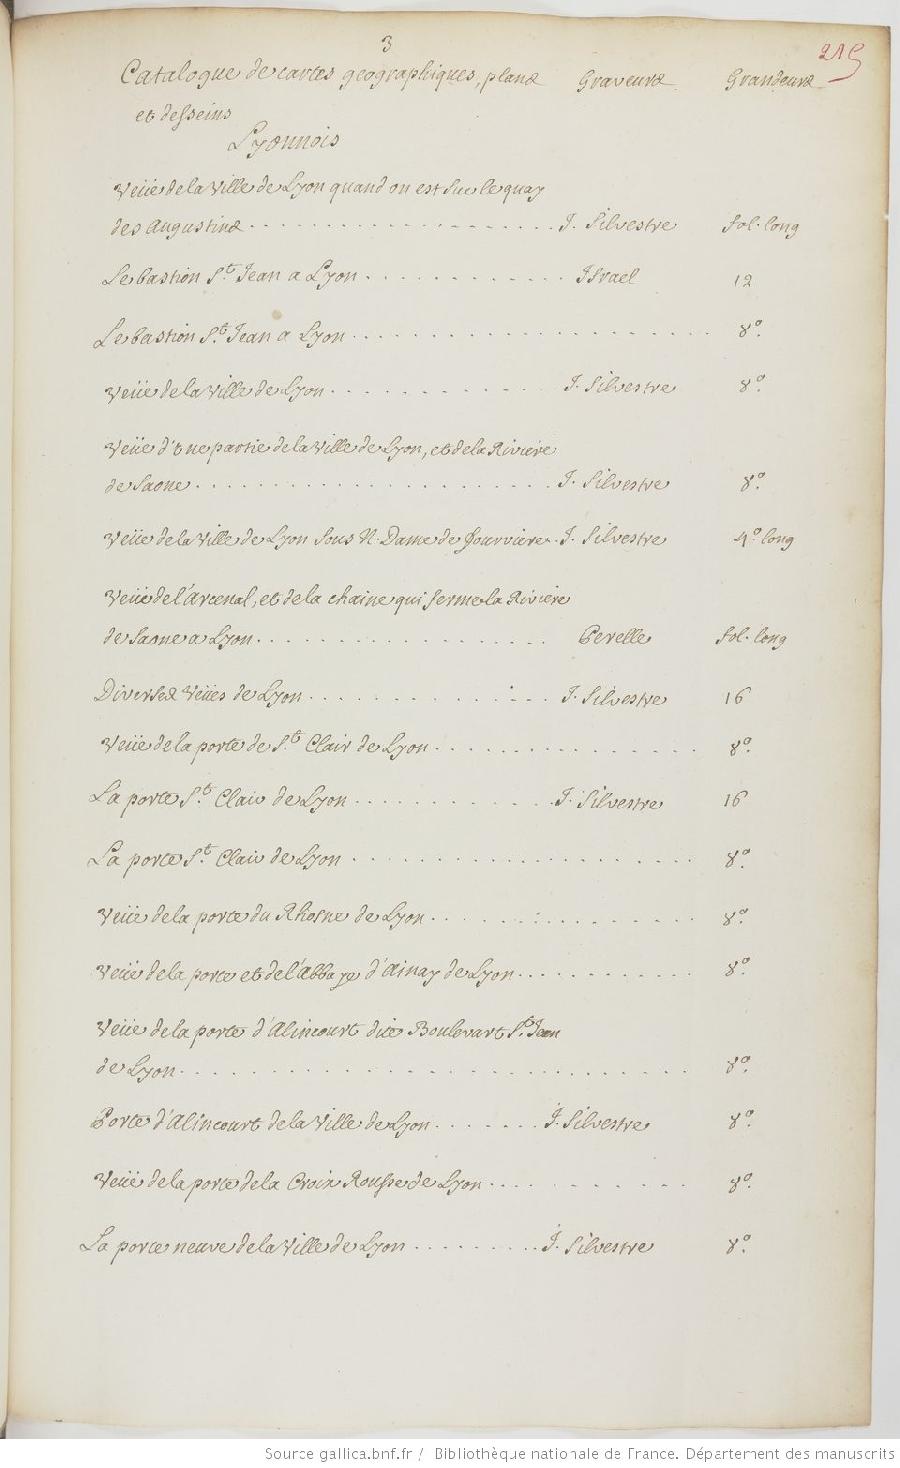 3
215
Catalogue de cartes geographiques, plans Graveurs Grandeurs
et desseins
Lyonnois
Veüe de la Ville de Lyon quand on est sur le quay
des Augustins J. Silvestre fol. long
Le bastion St. Jean a Lyon Israel 12
Le bastion St. Jean a Lyon 8o.
Veüe de la Ville de Lyon J. Silvestre 8o.
Veüe d'Une partie de la Ville de Lyon, et de la Riviere
de Saone J. Silvestre 8o.
Veüe de la Ville de Lyon sous N. Dame de Fourviere J. Silvestre 4o. long
Veüe de l'Arcenal, et de la chaine qui ferme la Riviere
de Saone a Lyon Perelle fol. long
Diverses Veües de Lyon J. Silvestre 16
Veüe de la porte de St. Clair de Lyon 8o.
La porte St. Clair de Lyon J. Silvestre 16
La porte St. Clair de Lyon 8o.
Veüe de la porte du Rhosne de Lyon 8o.
Veüe de la porte et de l'Abbaye d'Ainay de Lyon 8o.
Veüe de la porte d'Alincourt dite Boulevart St. Jean
de Lyon 8o.
Porte d'Alincourt de la Ville de Lyon J. Silvestre 8o.
Veüe de la porte de la Croix Rousse de Lyon 8o.
La porte neuve de la Ville de Lyon J. Silvestre 8o.
Source gallica.bnf.fr / Bibliothèque nationale de France. Département des manuscrits